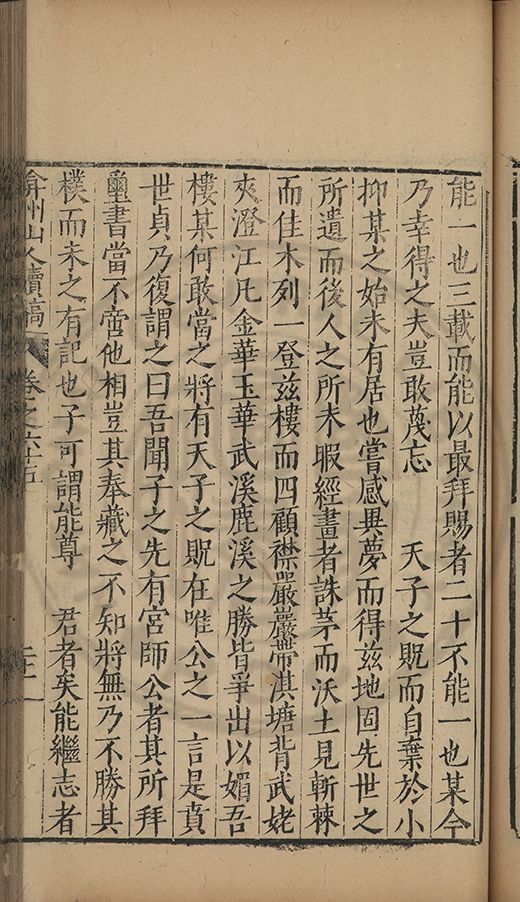 能一也三載而能以最拜賜者二十不能一也某今
乃幸得之夫豈敢蔑忘　　天子之貺而自棄於小
抑某之始未有居也嘗感異夢而得茲地固先世之
所遺而後人之所未暇經畫者誅茅而沃土見斬棘
而佳木列一登茲樓而四顧襟嚴巖帶淇塘背武姥
夾澄江凡金華玉華武溪鹿溪之勝皆爭出以媚吾
樓某何敢當之將有天子之貺在唯公之一言是賁
世貞乃復謂之曰吾聞子之先有宮師公者其所拜
璽書當不啻他相豈其奉藏之不知將無乃不勝其
樸而未之有記也子可謂能尊　　君者矣能繼志者
弇州山人續稿　卷之六十五